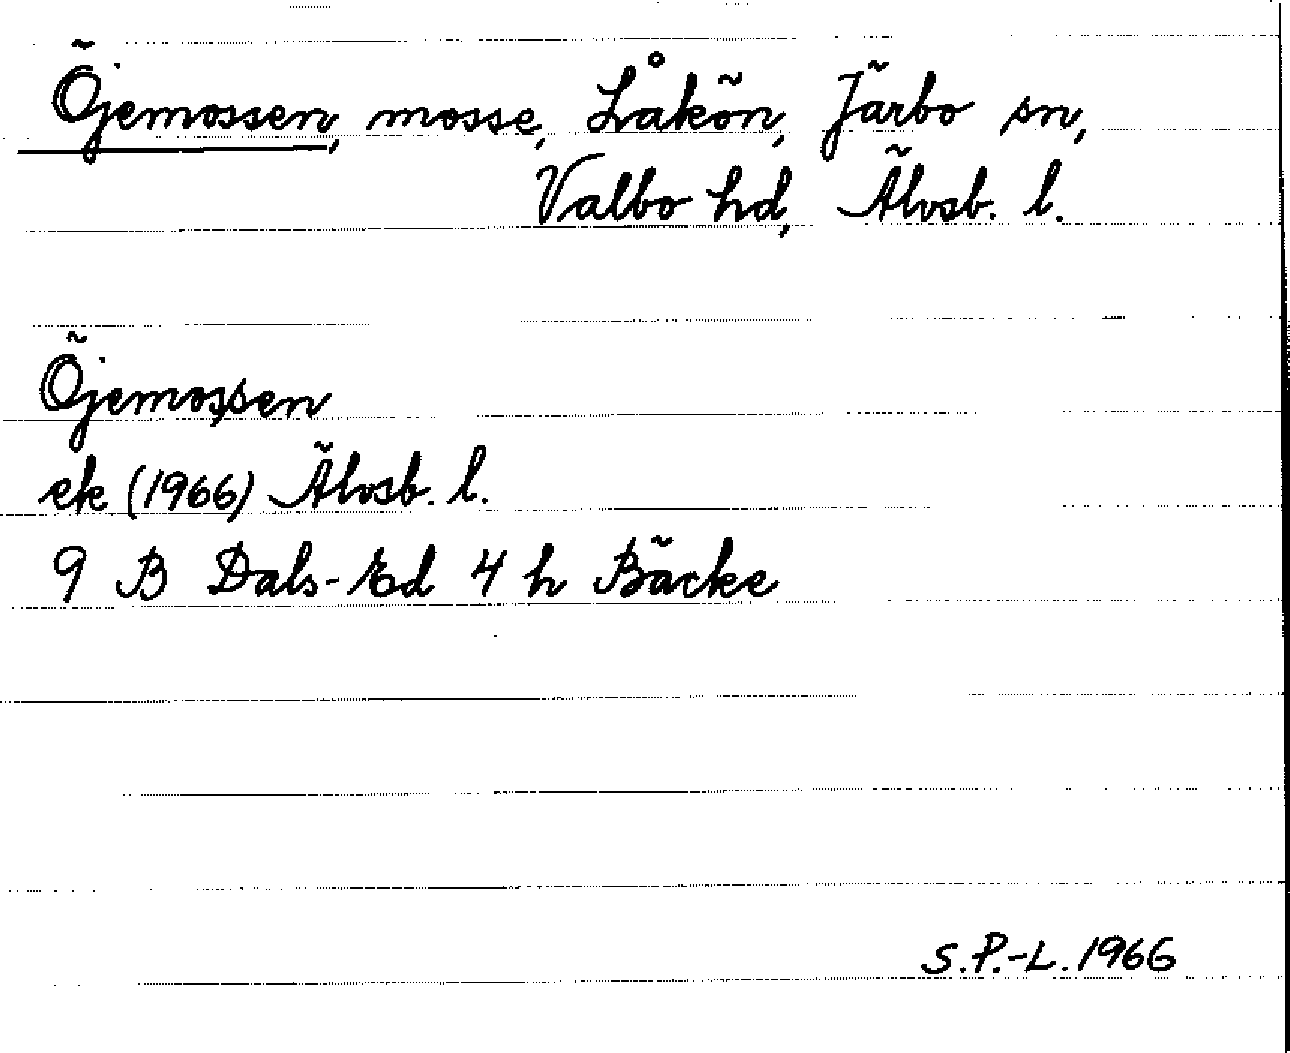 Öjemossen, mosse, Låkön, Järbo sn,
Valbo hd, Älvsb. l.
Öjemossen
ek (1966) Älvsb. l.
9 B Dals-Ed 4 h Bäcke
S.P.-L. 1966